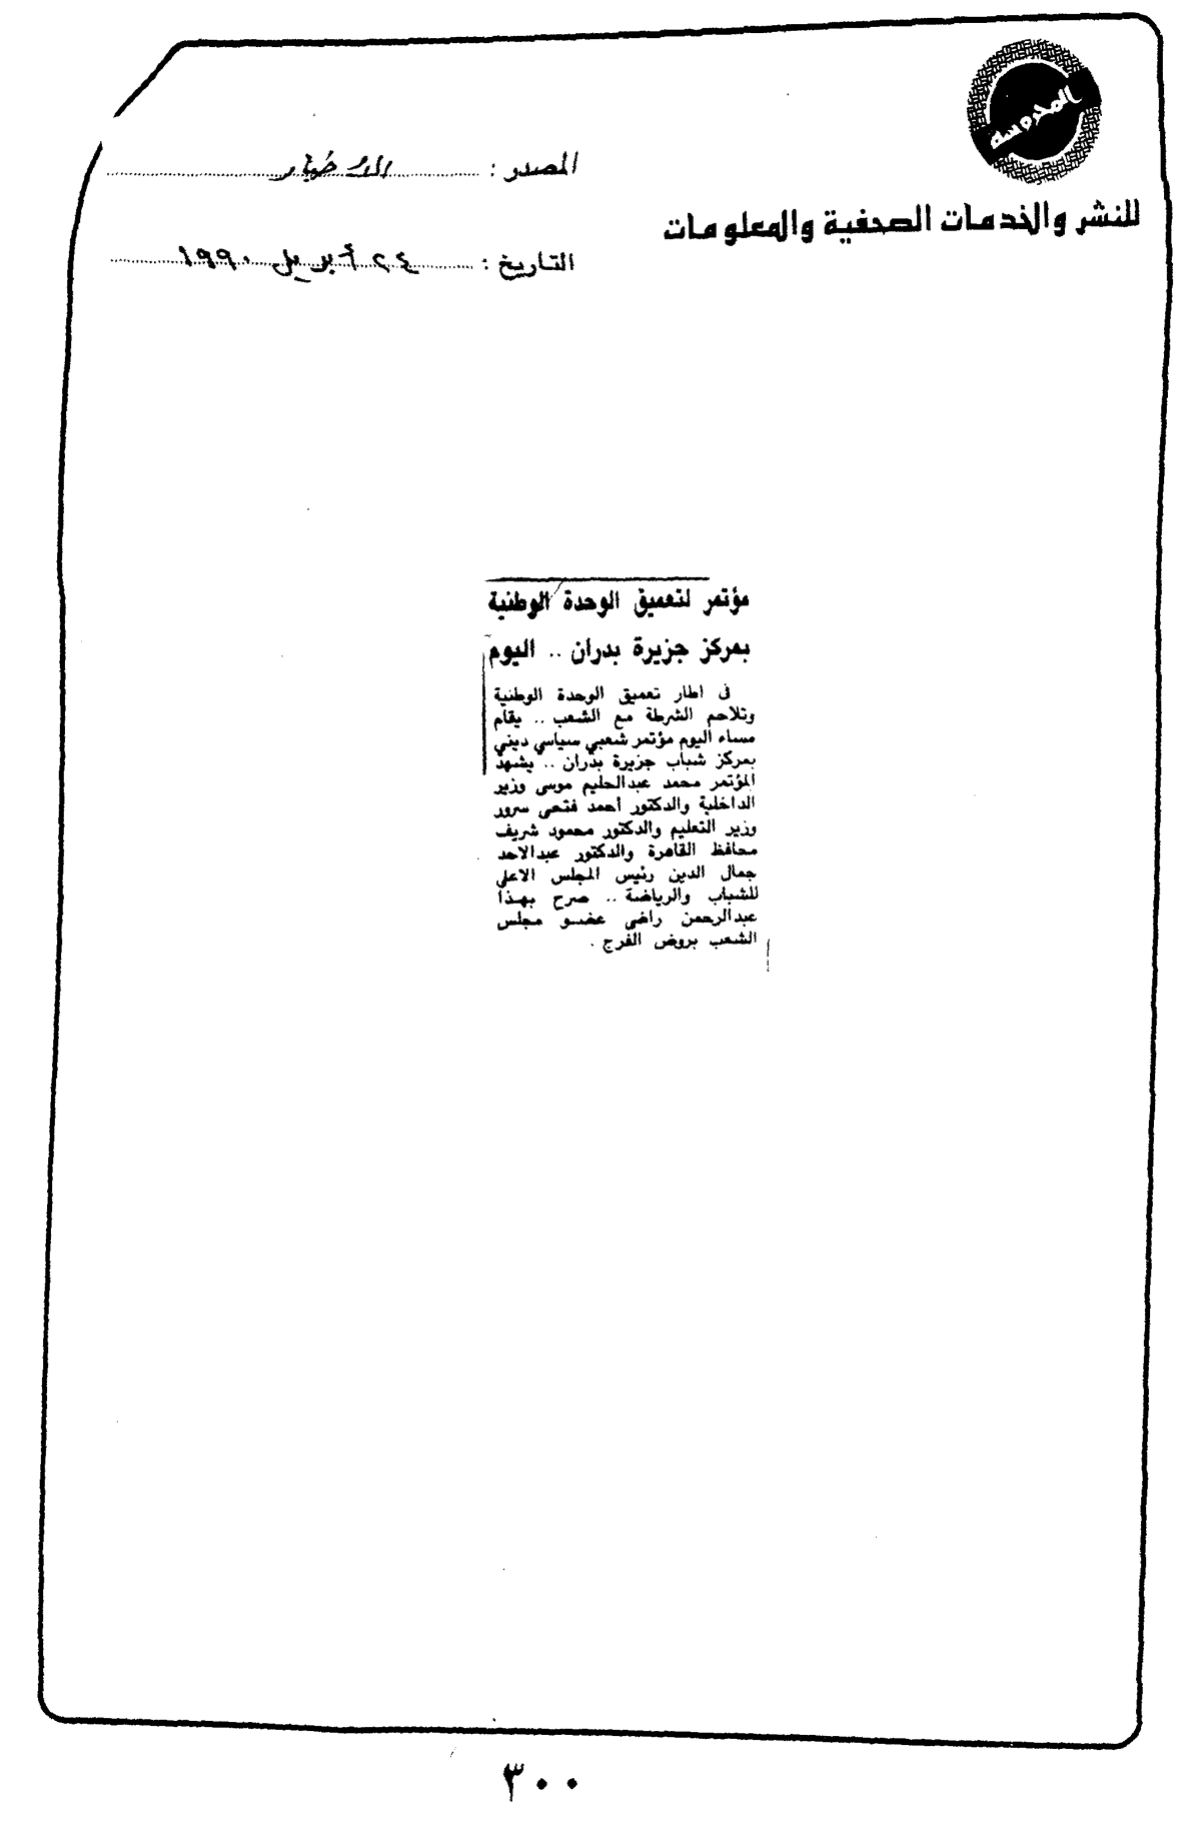 المحروسة
للنشر والخدمات الصحفية والمعلومات
المصدر : الأخبار
التاريخ : ٢٤ أبريل ١٩٩٠
مؤتمر لتعميق الوحدة الوطنية
بمركز جزيرة بدران .. اليوم
فى اطار تعميق الوحدة الوطنية
وتلاحم الشرطة مع الشعب .. يقام
مساء اليوم مؤتمر شعبي سياسي ديني
بمركز شباب جزيرة بدران .. يشهد
المؤتمر محمد عبدالحليم موسى وزير
الداخلية والدكتور احمد فتحى سرور
وزير التعليم والدكتور محمود شريف
محافظ القاهرة والدكتور عبدالاحد
جمال الدين رئيس المجلس الاعلى
للشباب والرياضة .. صرح بهذا
عبدالرحمن راضى عضو مجلس
الشعب بروض الفرج .
٣٠٠